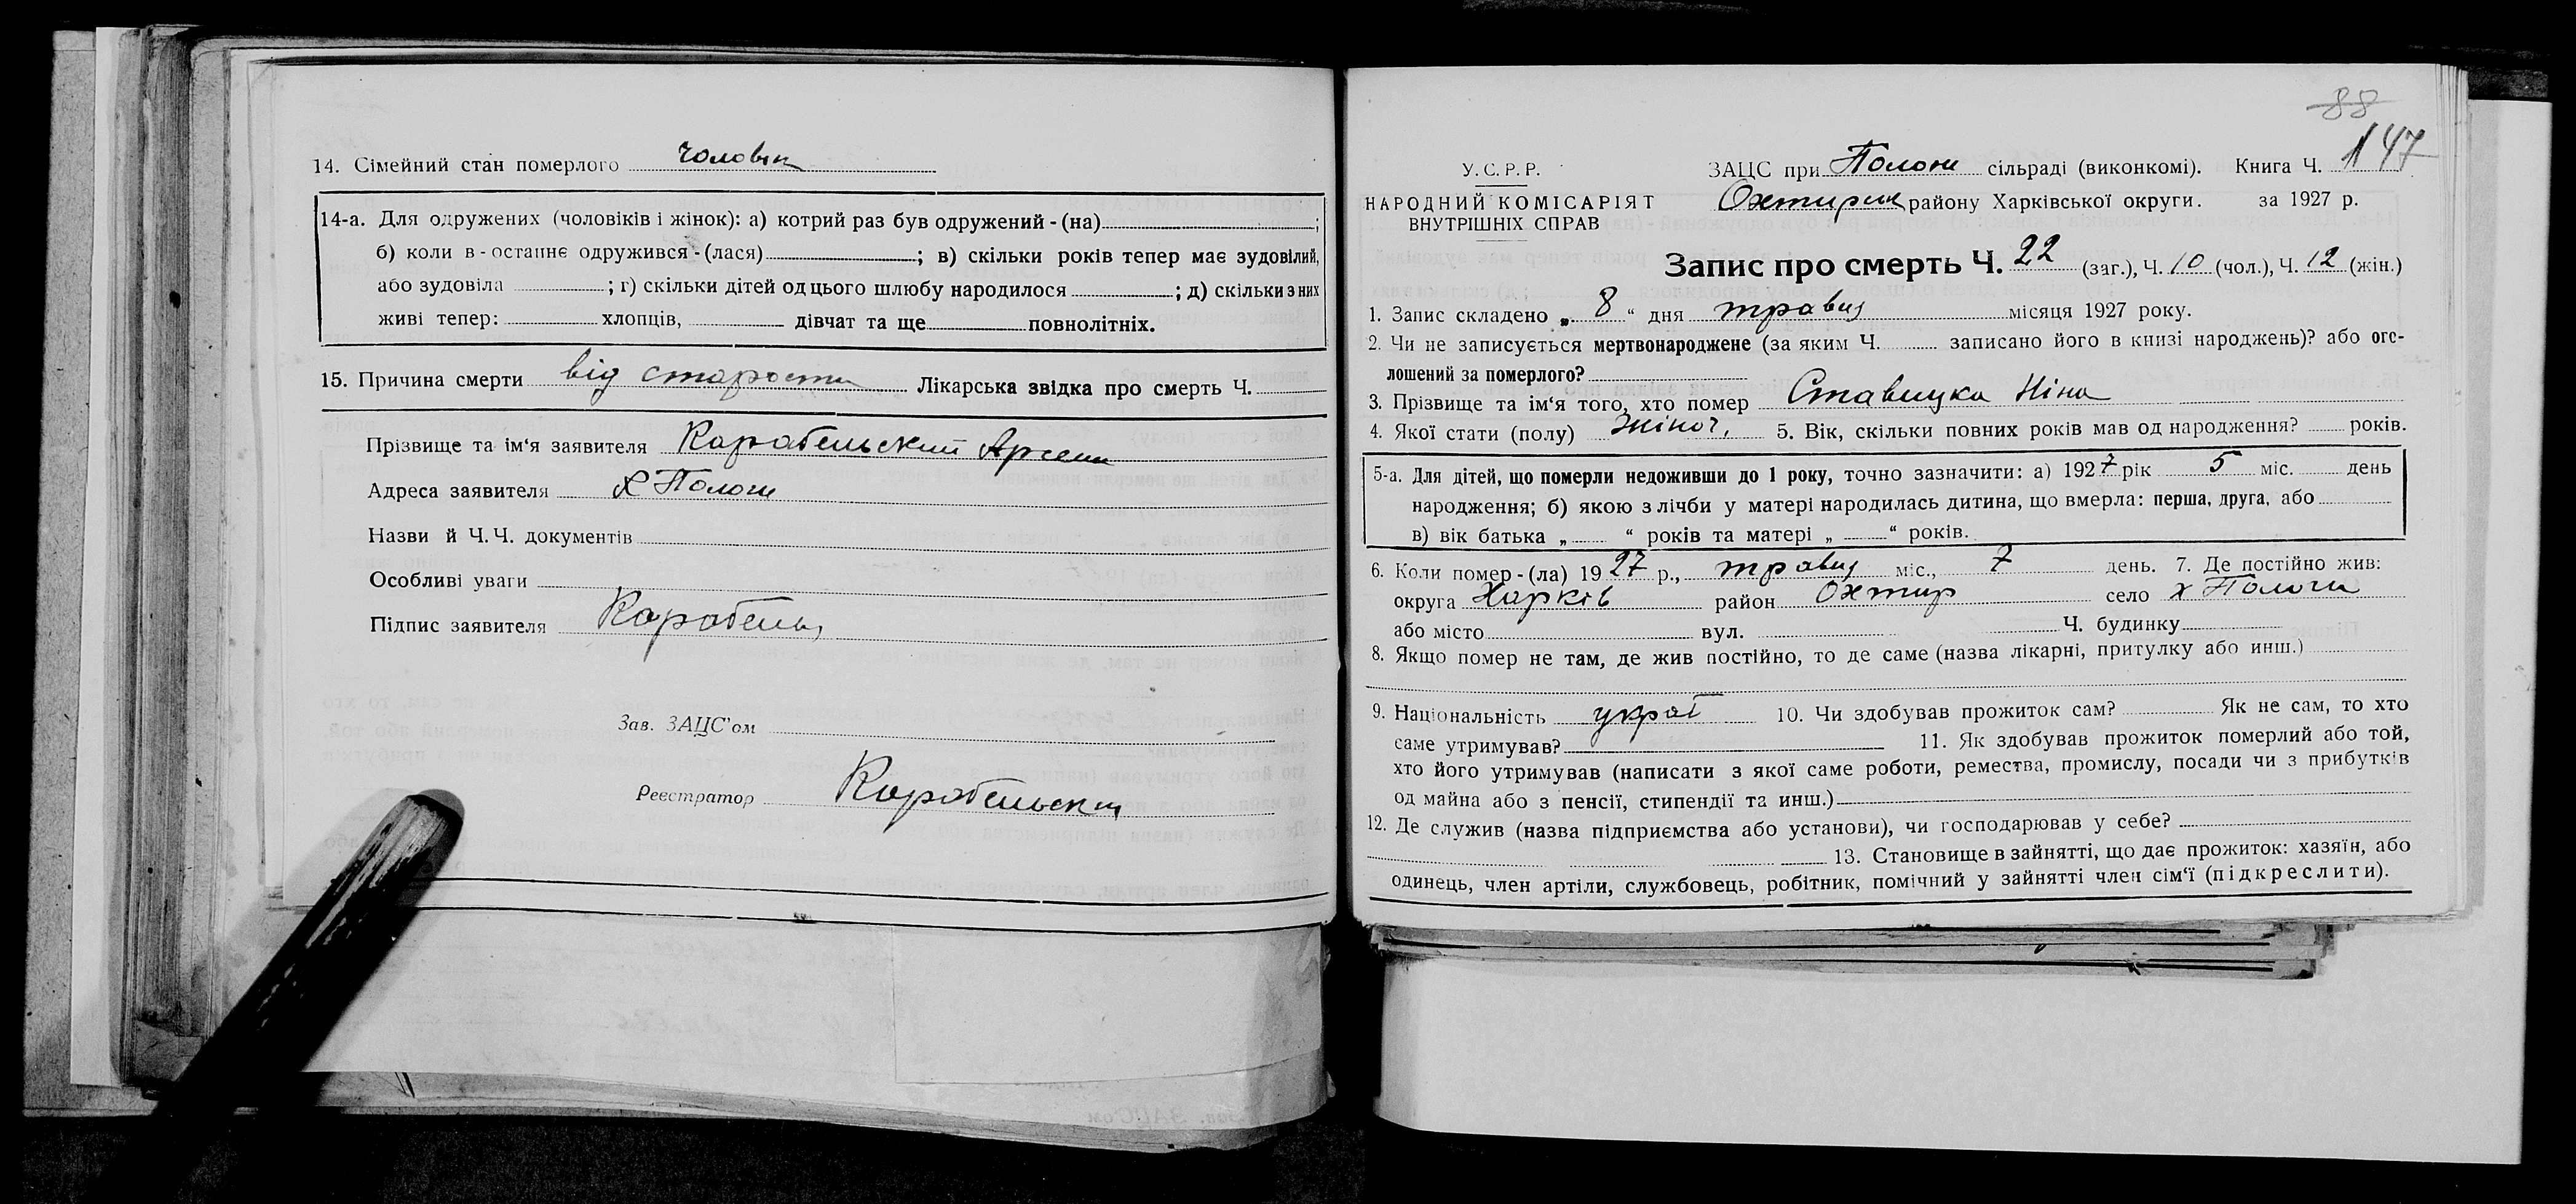 14. Сімейний стан померлого чоловік
14-а. Для одружених (чоловіків і жінок): а) котрий раз був одружений - (на) ;
б) коли в-останнє одружився - (лася) ; в) скільки років тепер має зудовілий,
або зудовіла ; г) скільки дітей од цього шлюбу народилося ; д) скільки з них
живі тепер: хлопців, дівчат та ще повнолітніх.
15. Причина смерти від старости Лікарська звідка про смерть Ч.
Прізвище та ім'я заявителя Карабельский Арсени
Адреса заявителя х Пологи
Назви й Ч.Ч. документів
Особливі уваги
Підпис заявителя Карабель
Зав. ЗАЦС'ом
Реєстратор Карабельски
88
147
У.С.Р.Р.
НАРОДНИЙ КОМІСАРІЯТ
ВНУТРІШНІХ СПРАВ
ЗАЦС при Пологи сільраді (виконкомі). Книга Ч.
Охтирск району Харківської округи. за 1927 р.
Запис про смерть Ч. 22 (заг.), Ч. 10 (чол.), Ч. 12 (жін.)
1. Запис складено „ 8 “ дня травня місяця 1927 року.
2. Чи не записується мертвонароджене (за яким Ч. записано його в книзі народжень)? або ого-
лошений за померлого?
3. Прізвище та ім'я того, хто помер Ставицка Ніна
4. Якої стати (полу) жіноч. 5. Вік, скільки повних років мав од народження? років.
5-а. Для дітей, що померли недоживши до 1 року, точно зазначити: а) 1927 рік 5 міс. день
народження; б) якою з лічби у матері народилась дитина, що вмерла: перша, друга, або
в) вік батька „ “ років та матері „ “ років.
6. Коли помер - (ла) 1927 р., травня міс., 7 день. 7. Де постійно жив:
округа Харків район Охтир село х Пологи
або місто вул. Ч. будинку
8. Якщо помер не там, де жив постійно, то де саме (назва лікарні, притулку або инш.)
9. Національність украї 10. Чи здобував прожиток сам? Як не сам, то хто
саме утримував? 11. Як здобував прожиток померлий або той,
хто його утримував (написати з якої саме роботи, ремества, промислу, посади чи з прибутків
од майна або з пенсії, стипендії та инш.)
12. Де служив (назва підприємства або установи), чи господарював у себе?
13. Становище в зайнятті, що дає прожиток: хазяїн, або
одинець, член артіли, службовець, робітник, помічний у зайнятті член сім'ї (підкреслити).